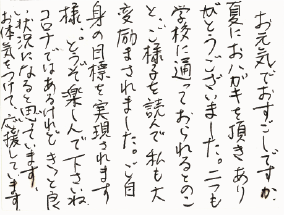 お元気でおすごしですか。
夏におハガキを頂きあり
がとうございました。二つも
学校に通っておられるとのこ
と、ご様子を読んで私も大
変励まされました。ご自
身の目標を実現されます
様に。どうぞ楽しんで下さいね。
コロナではあるけれどきっと良
い状況になると思っています。
お体気をつけて、応援しています。